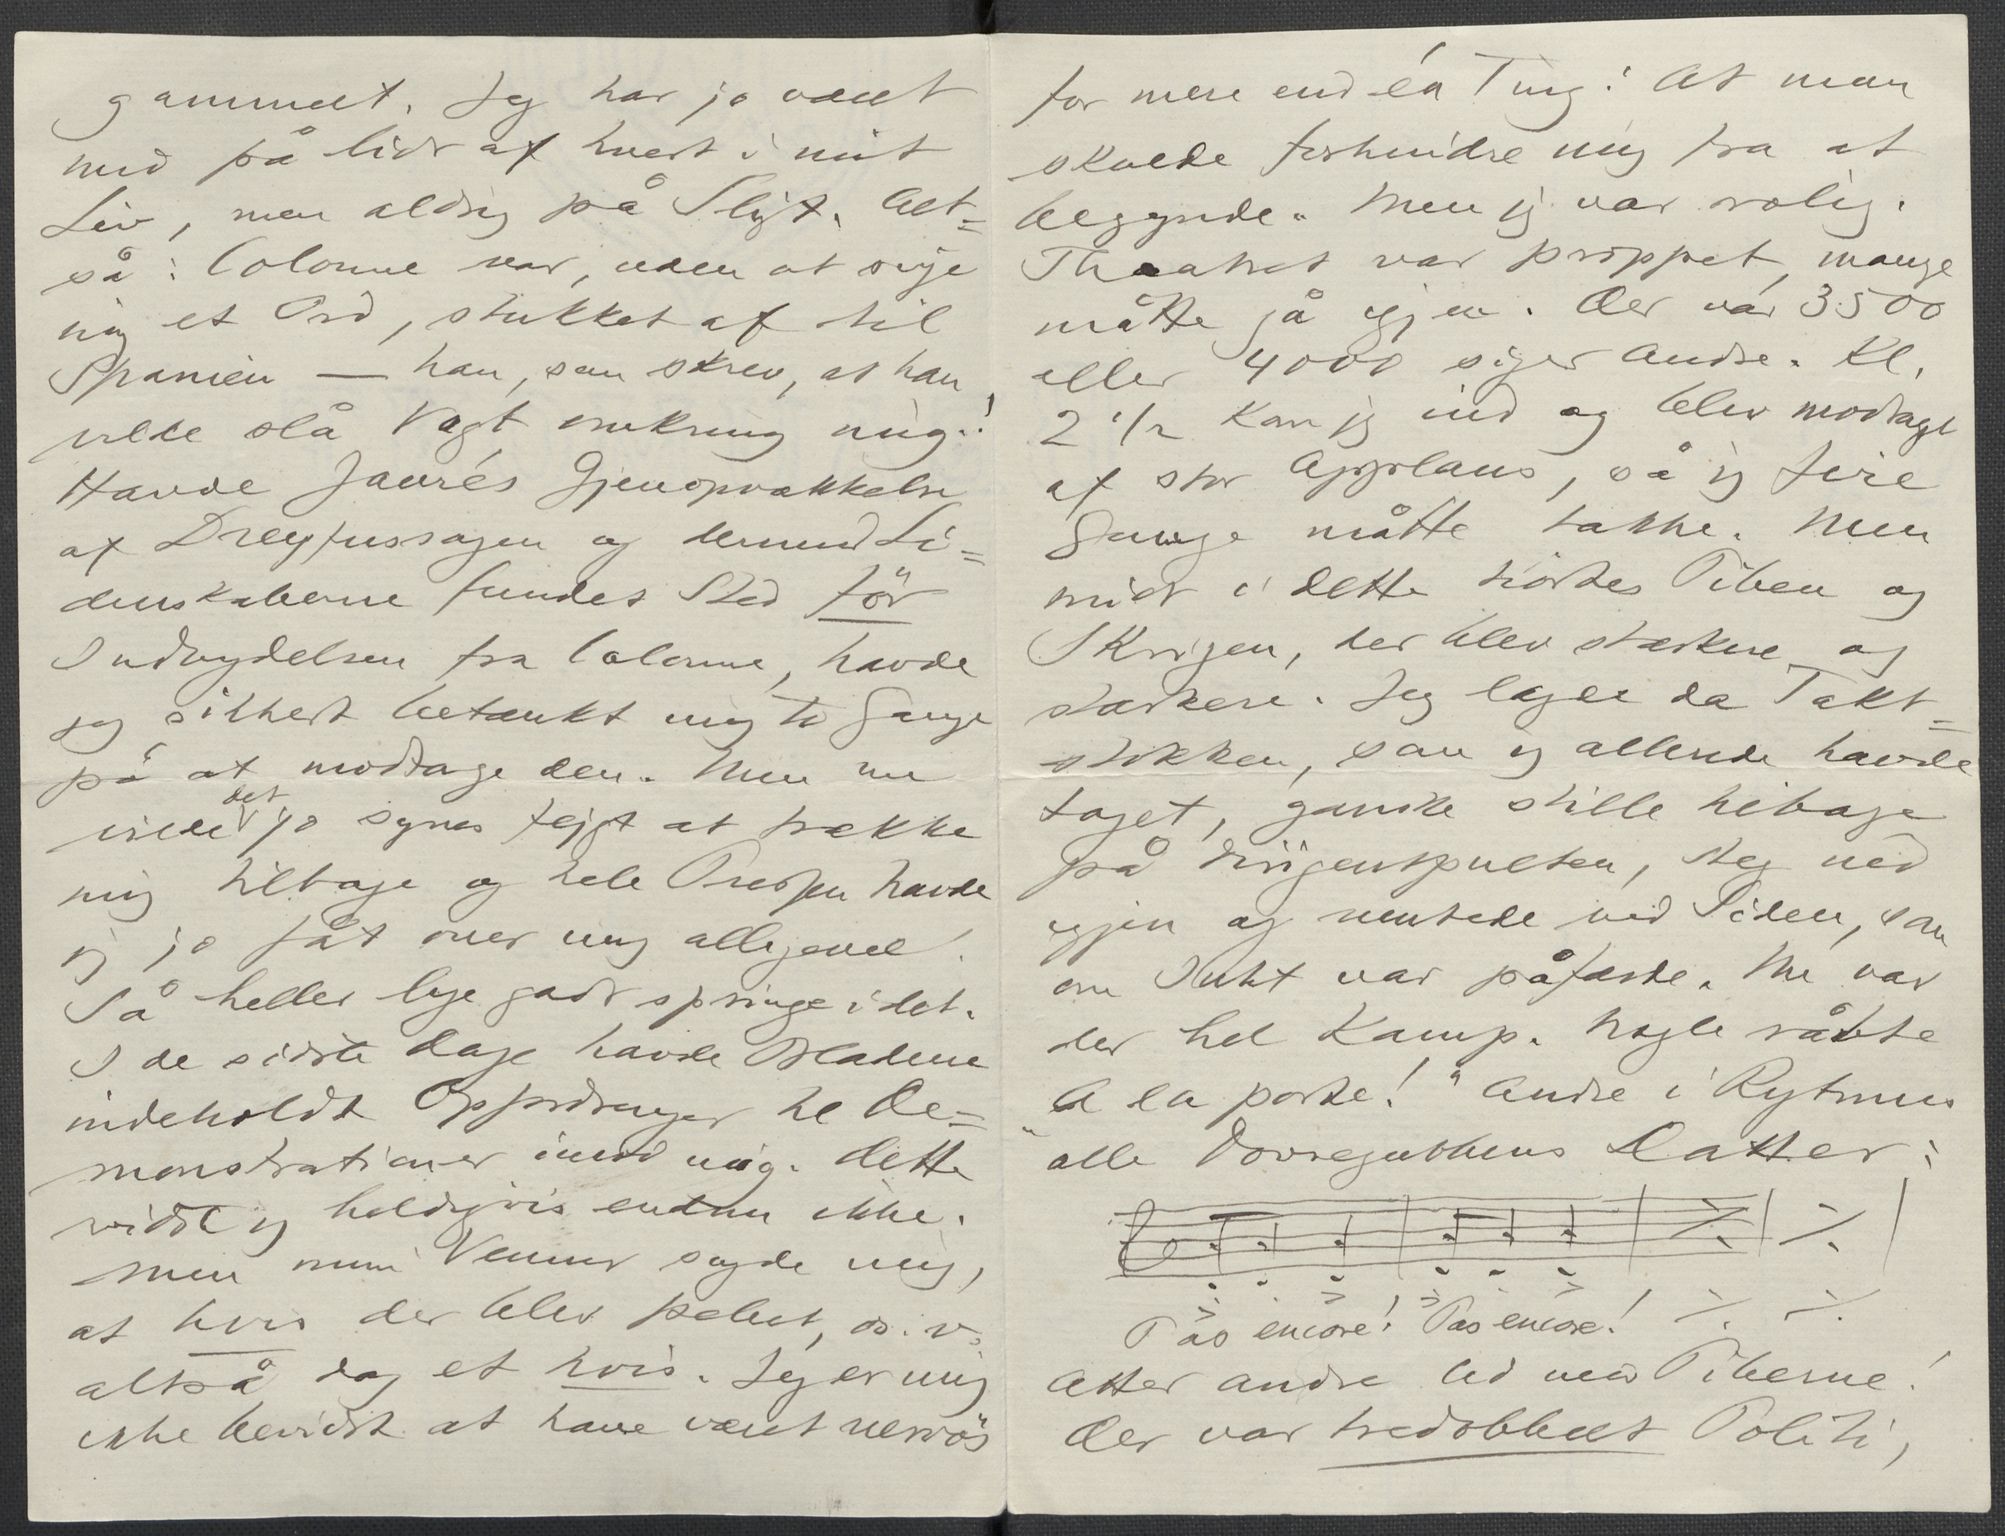 gammelt. Jeg har jo været
med på lidt af hvert i mit
Liv, men aldrig på Sligt. Alt=
så: Colonne var, uden at sige
mig et Ord, stukket af til
Spanien — han, som skrev, at han
vilde slå Vagt omkring mig.!
Havde Jaurés Gjenopvækkelse
af Dreyfussagen og dermed Li=
denskaberne fundet Sted för
Indbydelsen fra Colonne, havde
jeg sikkert betænkt mig to Gange
på at modtage den. Men nu
vilde det jo synes fejgt at trække
mig tilbage og hele Pressen havde
jeg jo fåt over mig alligevel.
Så heller lige godt springe i det.
I de sidste Dage havde Bladene
indeholdt Opfordringer til De=
monstrationer imod mig. Dette
vidste jeg heldigvis endnu ikke.
Men mine Venner sagde mig,
at hvis der blev pebet, o.s.v.
altså dog et hvis. Jeg er mig
ikke bevidst at have været nervös
for mere end én Ting: At man
skulde forhindre mig fra at
begynde. Men jeg var rolig.
Theatret var proppet, mange
måtte gå igjen. Der var 3500
eller 4000 siger Andre. Kl.
2 1/2 kom jeg ind og blev modtaget
af stor Applaus, så jeg fire
Gange måtte takke. Men
midt i dette hördes Piben og
Skrigen, der blev stærkere og
stærkere. Jeg lagde da Takt=
stokken, som jeg allerede havde
taget, ganske stille tilbage
på Dirigentpulten, steg ned
igjen og ventede ved Siden, som
om Intet var påfærde. Nu var
der hel Kamp. Nogle råbte
"A la porte!" Andre i Rytmus
alle Dovregubbens Datter:
Pas encore! Pas encore!
Atter andre lod med Piberne!
Der var tredobbelt Politi,